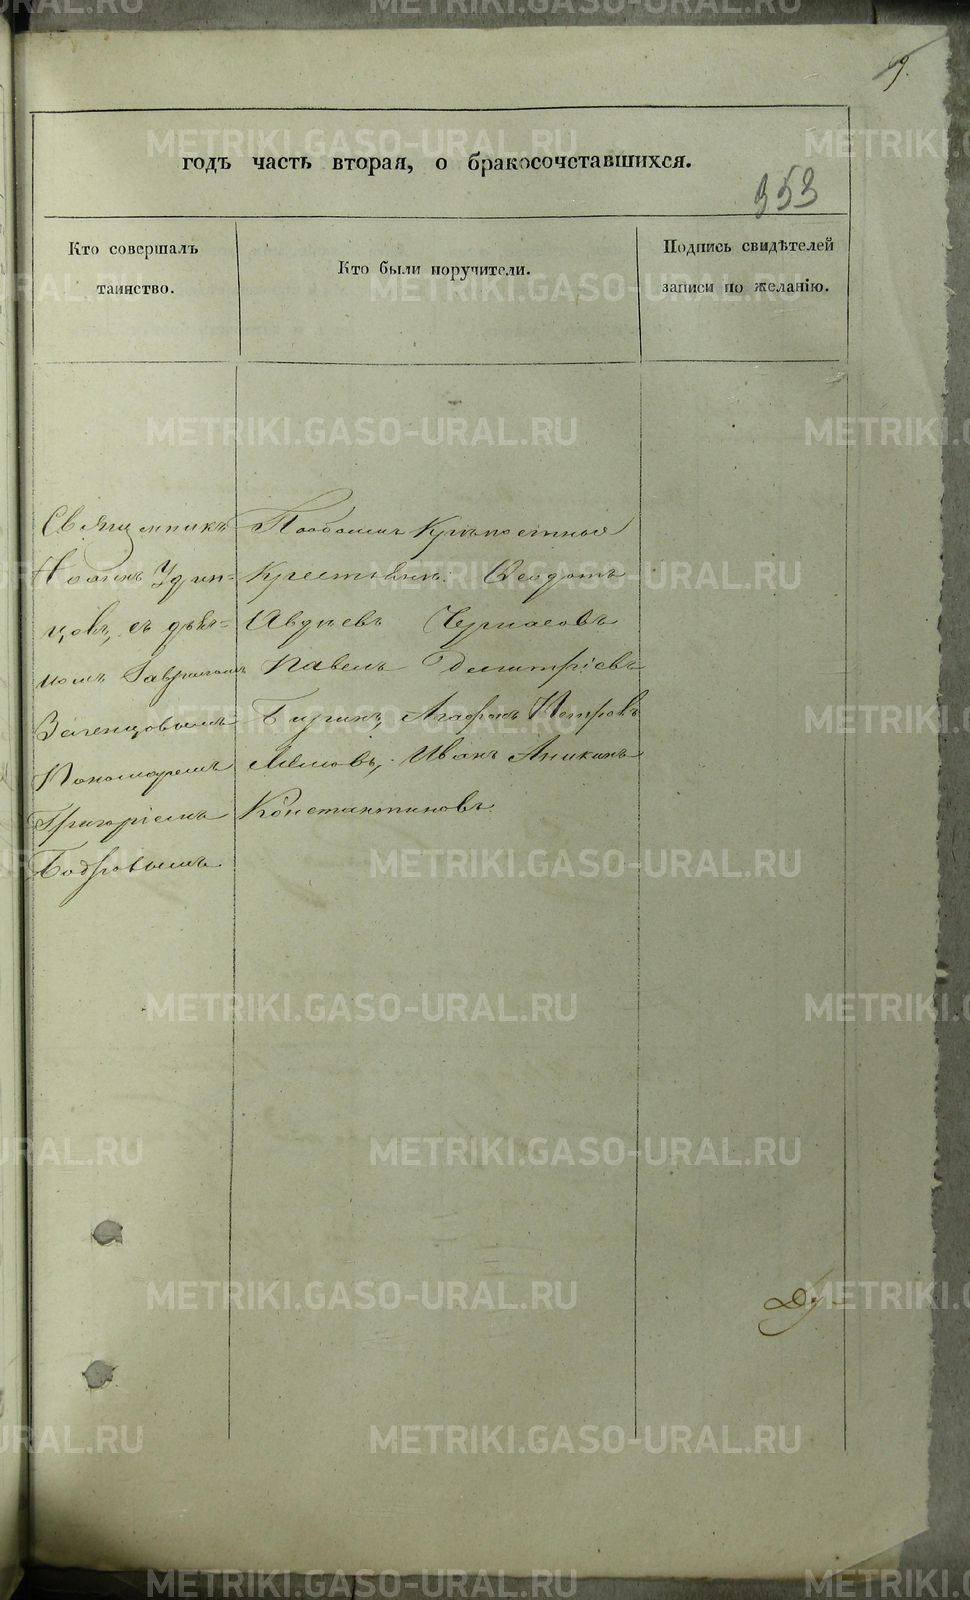 9.
годъ часть вторая, о бракосочетавшихся.
353
Кто совершалъ
таинство.
Кто были поручители.
Подпись свидѣтелей
записи по желанію.
Священникъ
Іоаннъ Удин-
цовъ, съ дья-
Зеленцовымъ
Пономаремъ
Григоріемъ
Бодровымъ
По обоимъ Крѣпостные
крестьяне: Ѳеодотъ
Авдѣевъ
Павелъ Димитріевъ
Агафонъ Петровъ
Иванъ Аникинъ
Константиновъ
METRIKI.GASO-URAL.RU